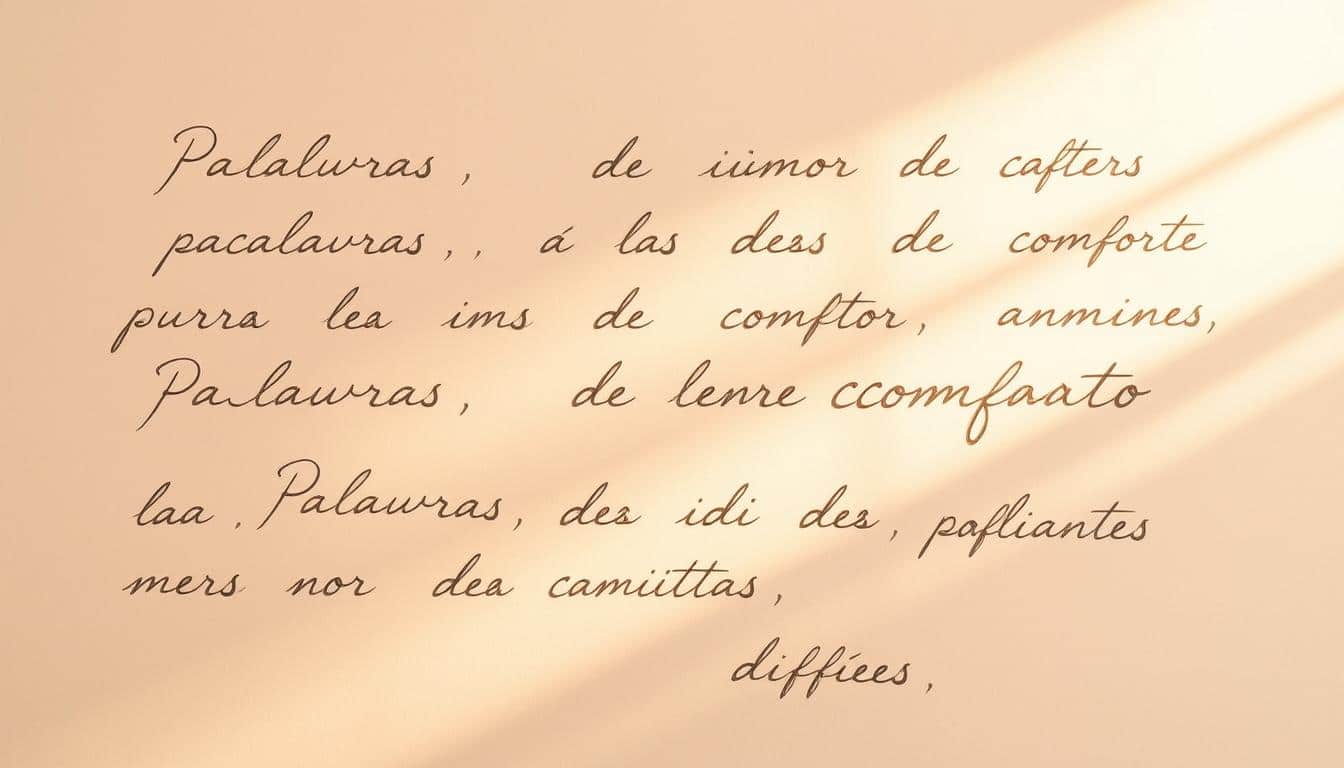 Palalwras, de iümor de cafters
pacalavras,, á las dezs de comforte
purra lea ims de comftor, anmines,
Palawras, de lenre ccomnfaato
laa. Palawras, dez idi dez, pafliantes
mers nor dea camiittas,
diffíees,